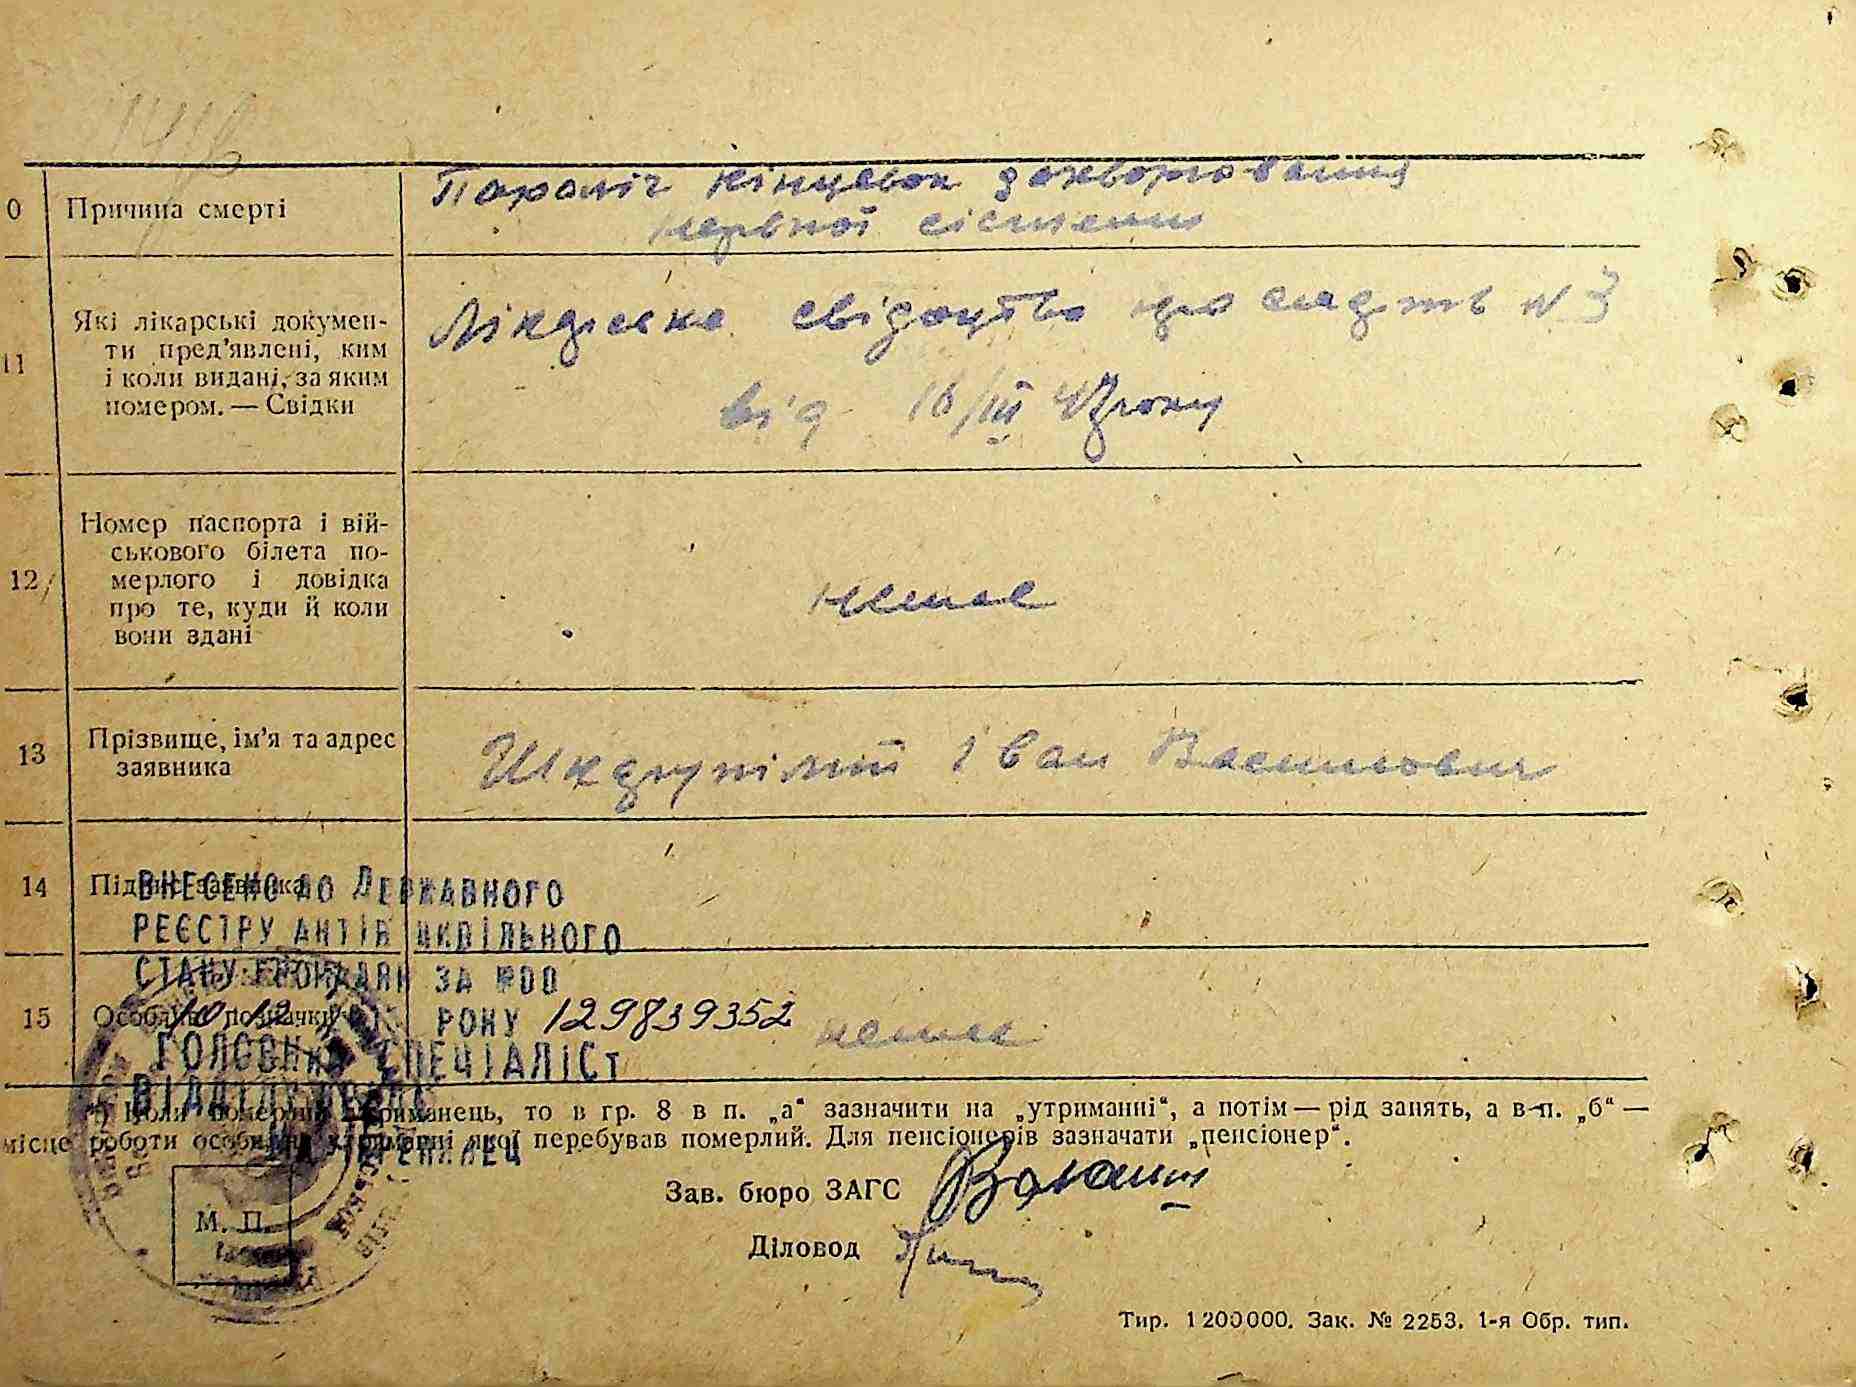 0 Причина смерті
Параліч кінцевок захворювання
нервної сістеми
11 Які лікарські докумен-
ти пред'явлені, ким
і коли видані, за яким
номером. — Свідки
Лікарське свідоцтво про смерть № 3
від 16/III 47 року
12 Номер паспорта і вій-
ськового білета по-
мерлого і довідка
про те, куди й коли
вони здані
немає
13 Прізвище, ім'я та адрес
заявника
Шкарупілий Іван Васильович
14 Підпис заявника
ВНЕСЕНО ДО ДЕРЖАВНОГО
РЕЄСТРУ АКТІВ ЦИВІЛЬНОГО
СТАНУ ГРОМАДЯН ЗА №00
15 Особливі позначки
РОКУ 129839352 немає
ГОЛОВНИЙ СПЕЦІАЛІСТ
ВІДДІЛУ
*) Коли померлий утриманець, то в гр. 8 в п. „а“ зазначити на „утриманні“, а потім — рід занять, а в п. „б“ —
місце роботи особи, на утриманні якої перебував померлий. Для пенсіонерів зазначати „пенсіонер“.
Зав. бюро ЗАГС
М. П.
Діловод
Тир. 1200000. Зак. № 2253. 1-я Обр. тип.